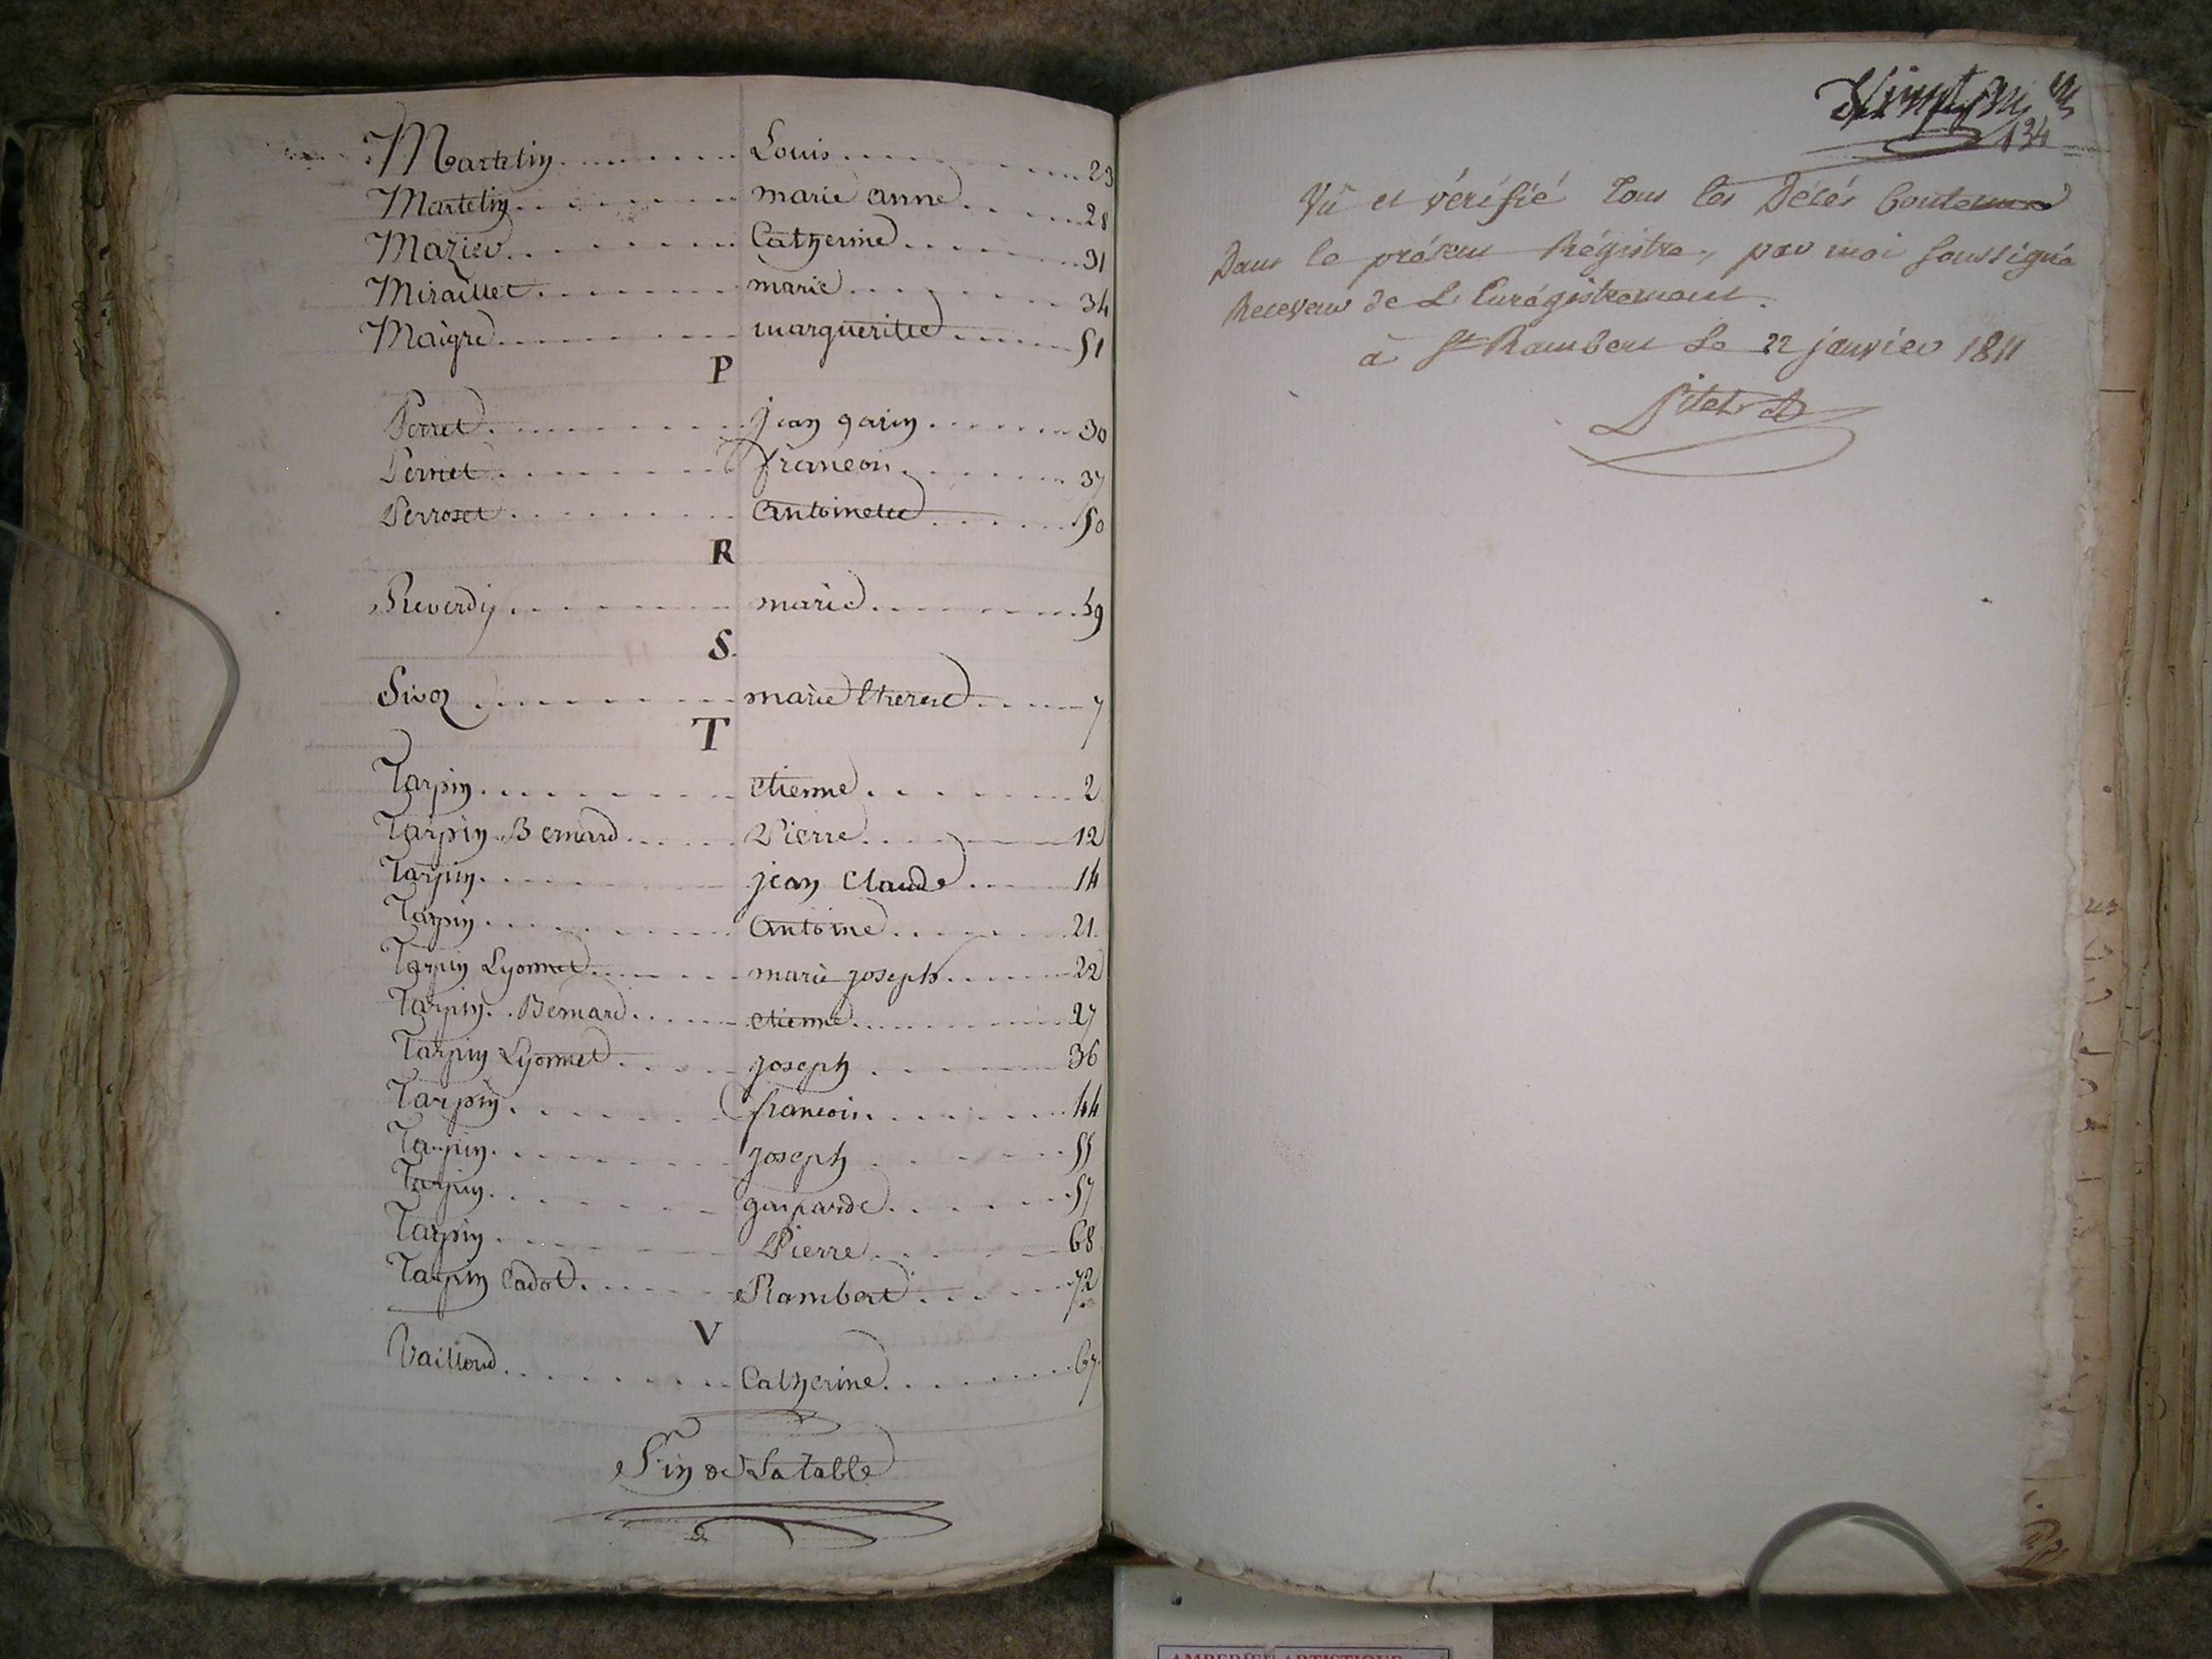 Martelin Louis 23
Martelin marie anne 28
Mazier Catherine 31
Miraillet marie 34
Maigre margueritte 51
P
Perret jean garin 30
Pernet francois 37
Perroset Antoinette 50
R
Reverdy marie 59
S.
Sivoz marie therese 7
T
Tarpin etienne 2
Tarpin Bernard Pierre 12
Tarpin jean Claude 14
Tarpin Antoine 21
Tarpin Lyonnet marie joseph 22
Tarpin Bernard etienne 27
Tarpin Lyonnet joseph 36
Tarpin francois 44
Tarpin joseph 55
Tarpin gasparde 57
Tarpin Pierre 68
Tarpin Cadot Rambert 72
V
Vailloud Catherine 67
Fin de La table
134
Vû et vérifié tous les Décés Contenus
Dans le présent Régistre, par moi soussigné
Receveur de L'Enrégistrement.
à St Rambert Le 22 janvier 1811
AMBERIEU ARTISTIQUE